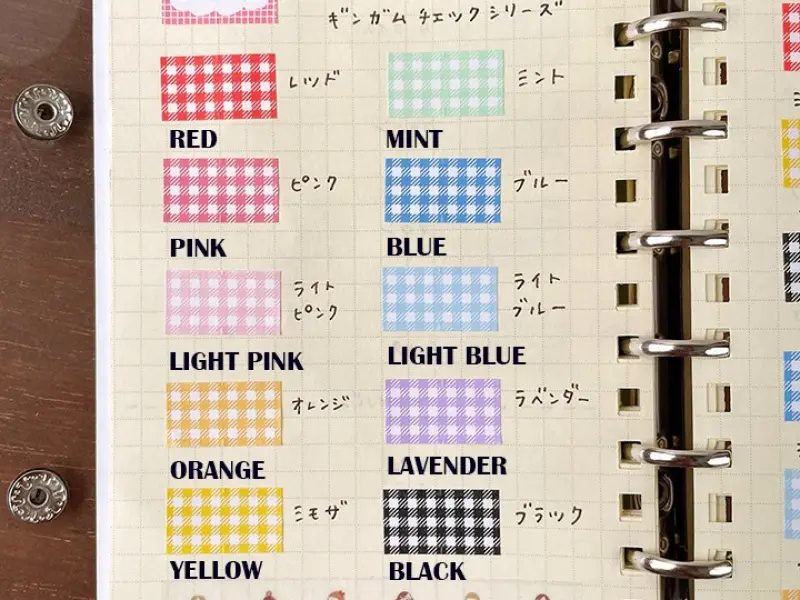 ギンガム チェックシリーズ
レッド
RED
ミント
MINT
ピンク
PINK
ブルー
BLUE
ライト
ピンク
LIGHT PINK
ライト
ブルー
LIGHT BLUE
オレンジ
ORANGE
ラベンダー
LAVENDER
ミモザ
YELLOW
ブラック
BLACK